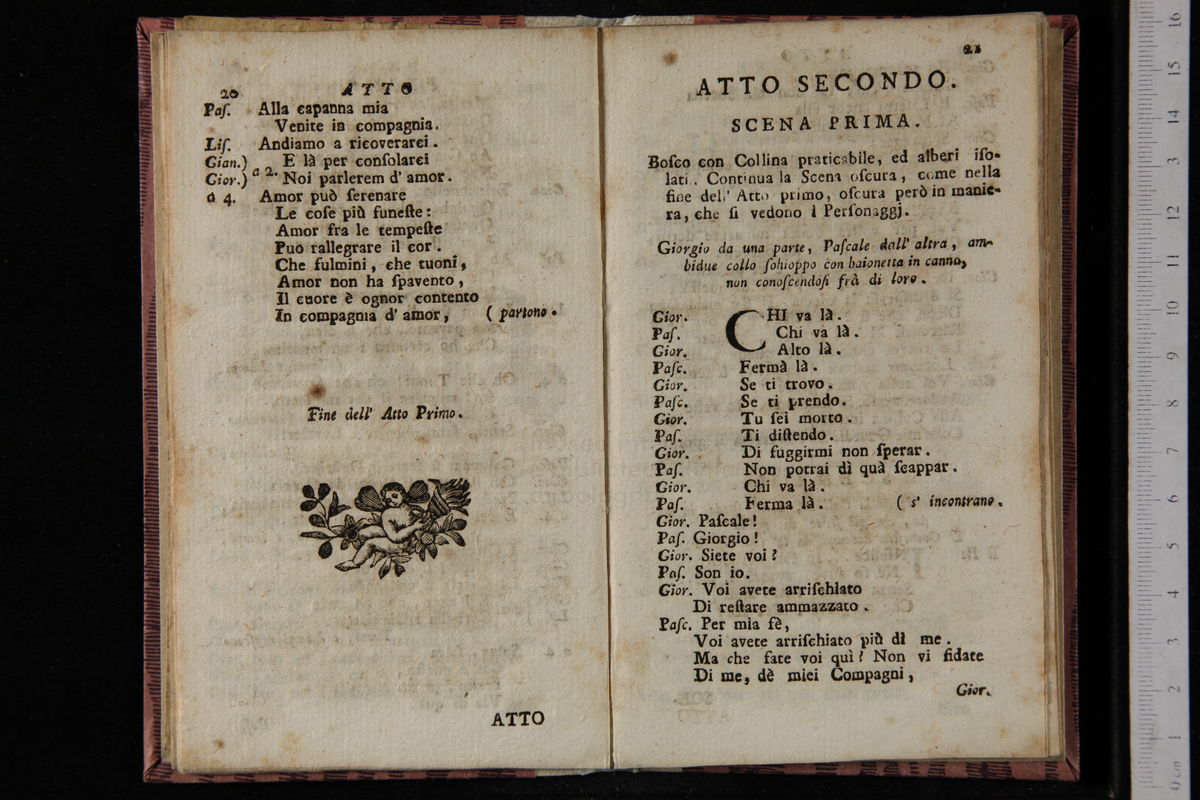 20 ATTO
Paſ. Alla capanna mia
Venite in compagnia.
Liſ. Andiamo a ricoverarci.
Gian.) E là per conſolarci
Gior.) a 2. Noi parlerem d' amor.
a 4. Amor può ſerenare
Le coſe più funeſte:
Amor fra le tempeſte
Può rallegrare il cor.
Che fulmini, che tuoni,
Amor non ha ſpavento,
Il cuore è ognor contento
In compagnia d' amor, ( partono.
Fine dell' Atto Primo.
ATTO
21
ATTO SECONDO.
SCENA PRIMA.
Boſco con Collina praticabile, ed alberi iſo-
lati. Continua la Scena oſcura, come nella
fine dell' Atto primo, oſcura però in manie-
ra, che ſi vedono i Perſonaggj.
Giorgio da una parte, Paſcale dall' altra, am-
bidue collo ſchioppo con baionetta in canna,
non conoſcendoſi frà di loro.
Gior. CHI va là.
Paſ. Chi va là.
Gior. Alto là.
Paſc. Fermà là.
Gior. Se ti trovo.
Paſc. Se ti prendo.
Gior. Tu ſei morto.
Paſ. Ti diſtendo.
Gior. Di fuggirmi non ſperar.
Paſ. Non potrai dì quà ſcappar.
Gior. Chi va là.
Paſ. Ferma là. ( s' incontrano.
Gior. Paſcale!
Paſ. Giorgio!
Gior. Siete voi?
Paſ. Son io.
Gior. Voi avete arriſchiato
Di reſtare ammazzato.
Paſc. Per mia fè,
Voi avete arriſchiato più di me.
Ma che fate voi quì? Non vi fidate
Di me, dè miei Compagni,
Gior.
16
15
14
13
12
11
10
9
8
7
6
5
4
3
2
1
0 cm